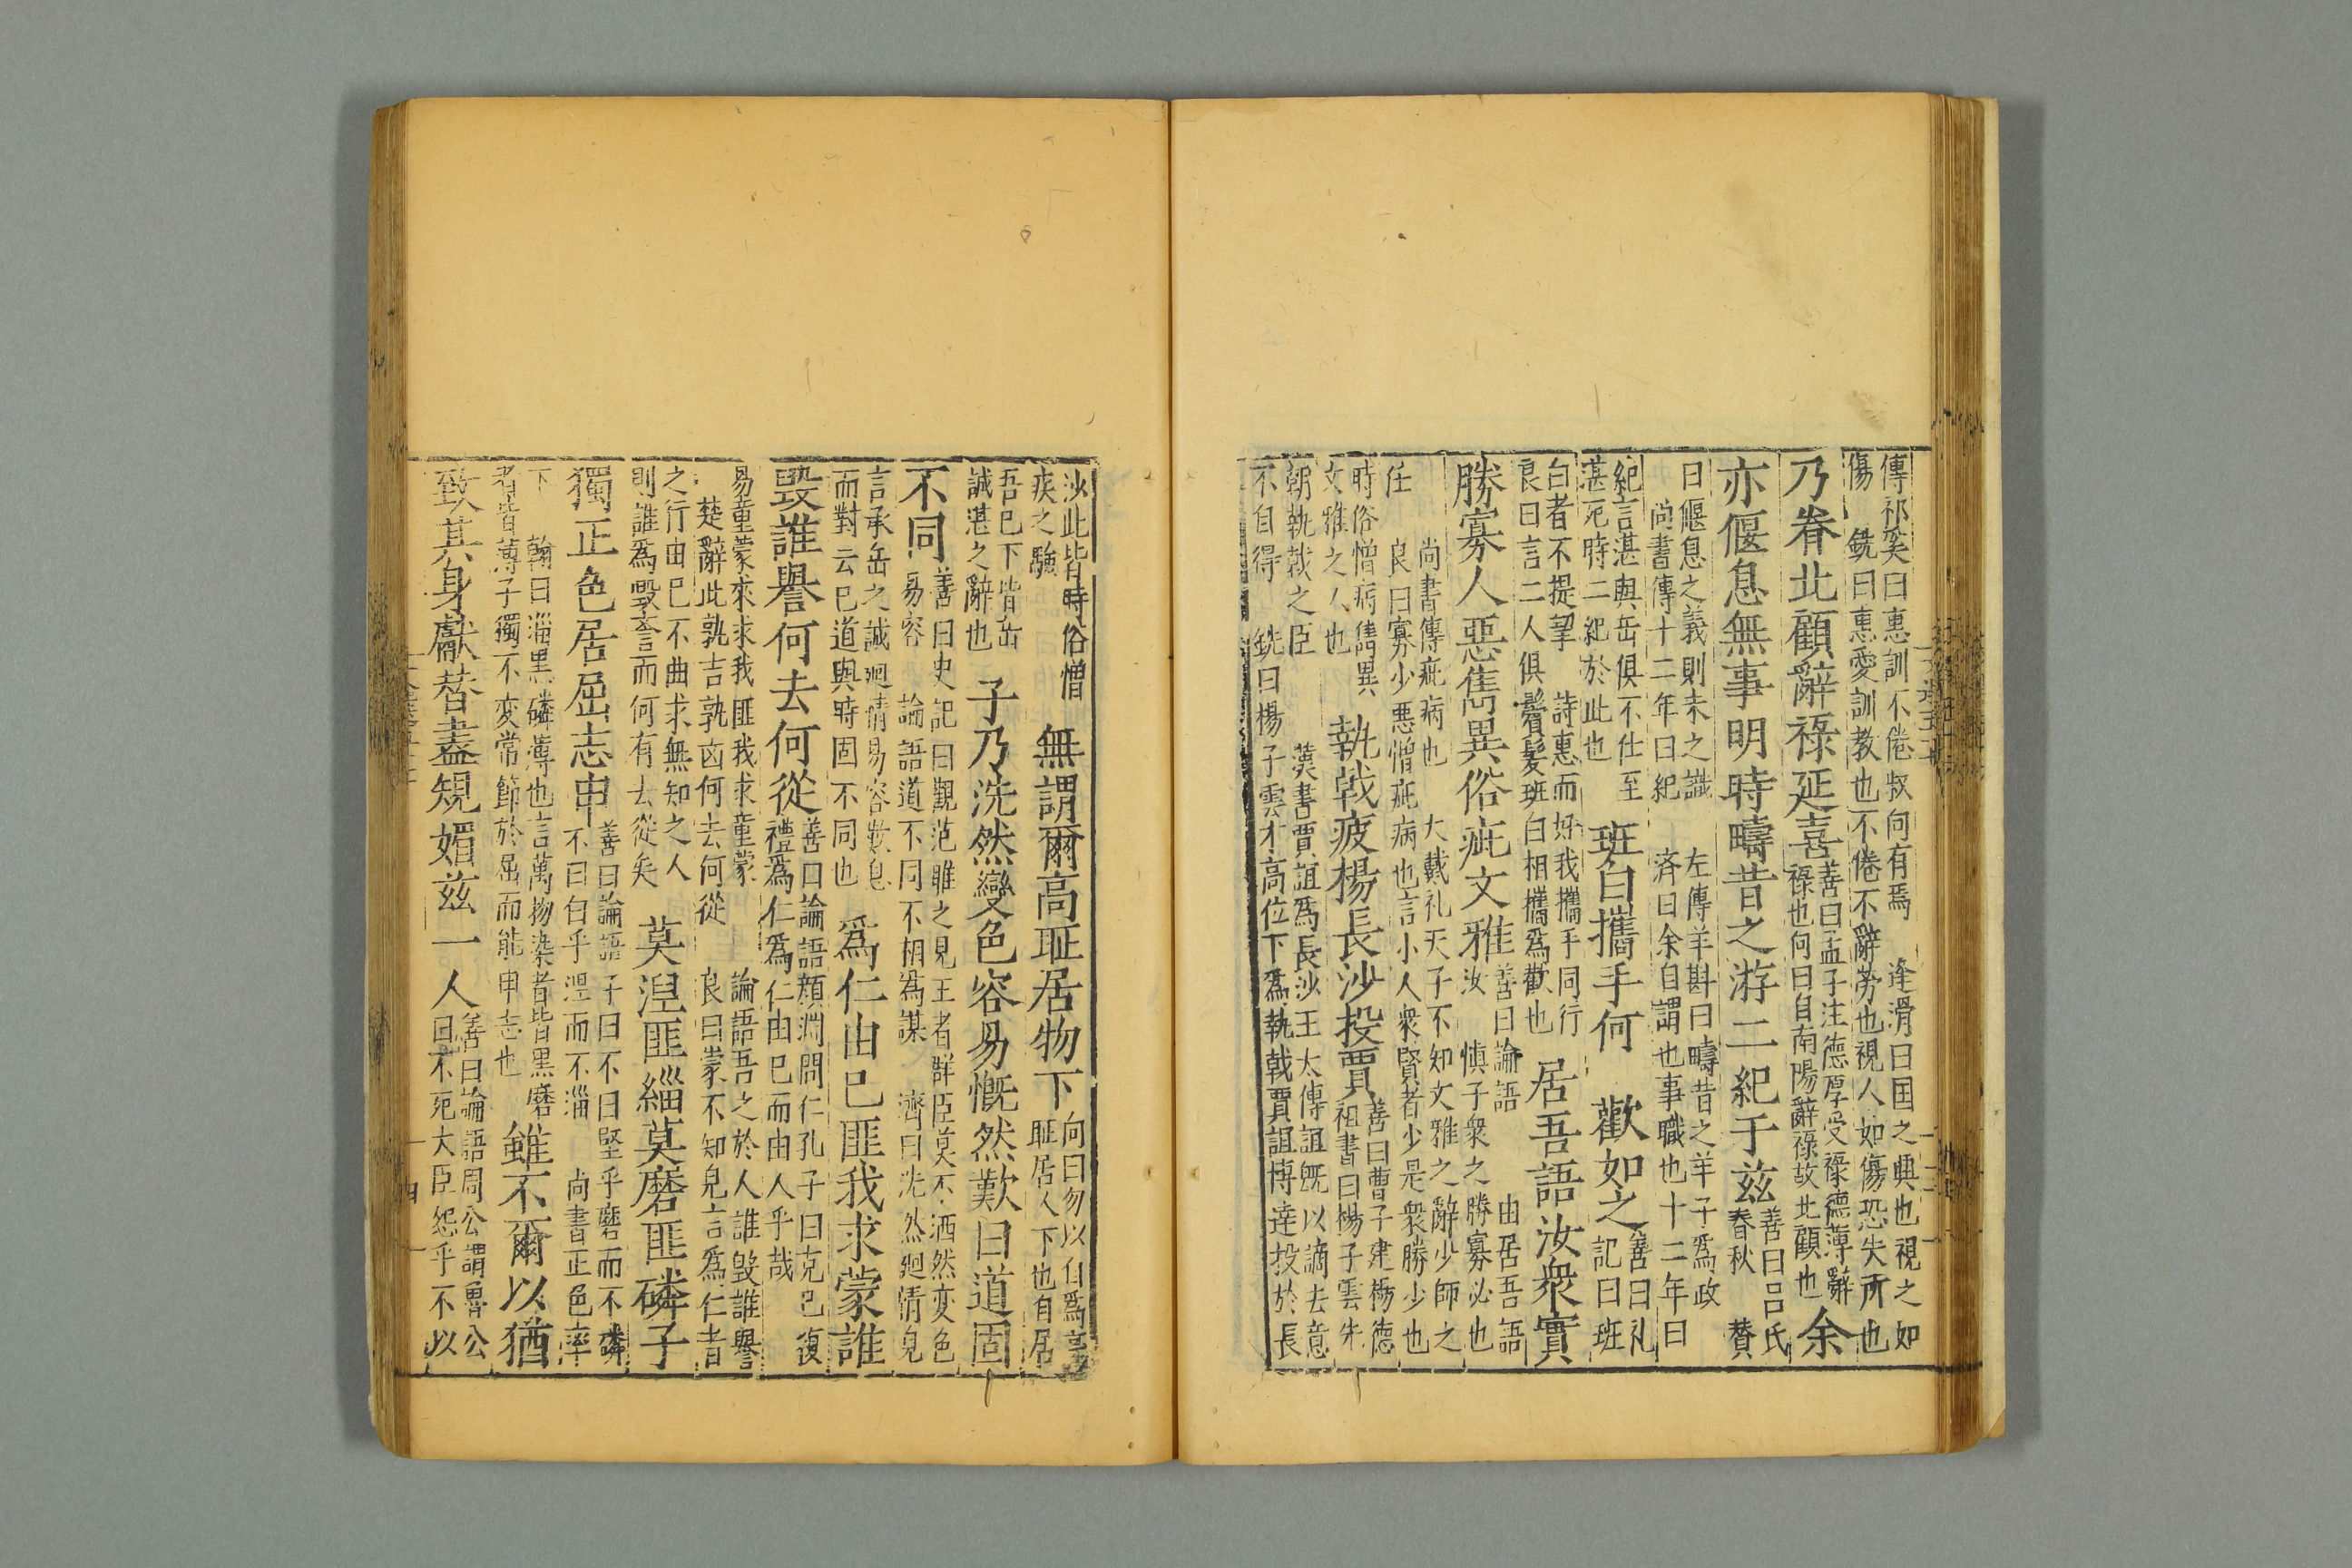 傳祁奚曰惠訓不倦叔向有焉　逢滑曰囯之興也視之如
傷　銑曰惠愛訓教也不倦不辭勞也視人如傷恐失所也
乃眷北顧辭祿延喜
善曰孟子注德厚受祿德薄辭
祿也何曰自南陽辭祿故北顧也
余
亦偃息無事明時疇昔之游二紀于兹
善曰呂氏
春秋　賛
曰偃息之義則未之識　左傳羊斟曰疇昔之羊子爲政
尚書傳十二年曰紀　済曰余自謂也事職也十二年曰
紀言湛與岳俱不仕至
湛死時二紀於此也
班白攜手何　歡如之
善曰礼
記曰班
白者不提挈　詩惠而好我攜手同行
良曰言二人俱鬢髮班白相攜爲歡也
居吾語汝衆實
勝寡人惡雋異俗疵文雅
善曰論語　由居吾語
汝　慎子衆之勝寡必也
尚書傳疵病也　大戴礼天子不知文雅之辭少師之
任　良曰寡少悪憎疵病也言小人衆賢者少是衆勝少也
時俗憎病雋異
文雅之人也
執戟疲楊長沙投賈
善曰曹子建楊德
祖書曰楊子雲先
朝執戟之臣　漢書賈誼爲長沙王太傅誼旣以謫去意
不自得　銑曰楊子雲才高位下爲執戟賈誼博達投於長
沙此皆時俗憎
疾之驗
無謂爾高恥居物下
向曰勿以自爲高
恥居人下也自居
吾巳下皆岳
誡湛之辭也
子乃洗然變色容易慨然歎曰道固
不同
善曰史記曰觀范雎之見王者群臣莫不洒然変色
易容　論語道不同不相爲謀　濟曰洗然廻情皃
言承岳之誡廻情易容歎息
而對云巳道與時固不同也
爲仁由巳匪我求蒙誰
毀誰譽何去何從
善曰論語顔淵問仁孔子曰克己復
禮爲仁爲仁由巳而由人乎哉
易童蒙求求我匪我求童蒙　論語吾之於人誰毀誰譽
楚辭此孰吉孰凶何去何從　良曰蒙不知皃言爲仁者
之行由巳不曲求無知之人
則誰爲毀訾而何有去從矣
莫湼匪緇莫磨匪磷子
獨正色居屈志申
善曰論語子曰不曰堅乎磨而不磷
不曰白乎湼而不淄　尚書正色率
下　翰曰淄黑磷薄也言萬物染者皆黒磨
者皆薄子獨不変常節於屈而能申志也
雖不爾以猶
致其身獻替盡規媚兹一人
善曰論語周公謂魯公
曰不死大臣怨乎不以